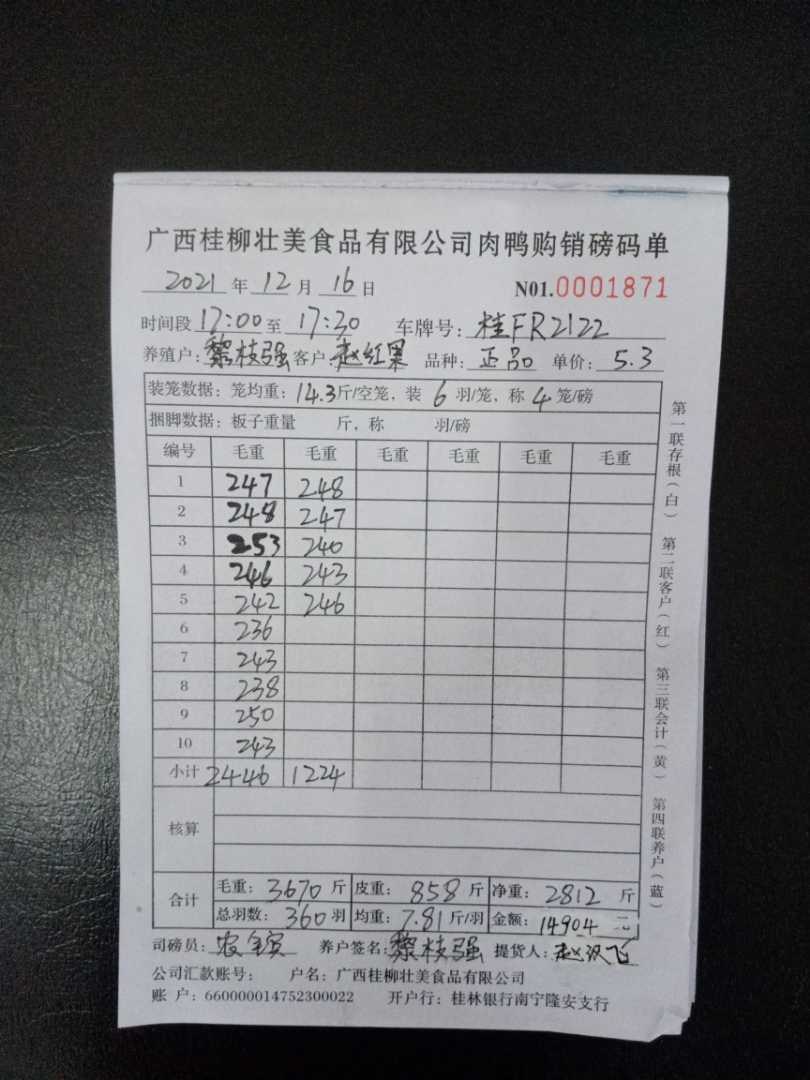 广西桂柳壮美食品有限公司肉鸭购销磅码单
2021 年 12 月 16 日 N01.0001871
时间段 17:00 至 17:30 车牌号: 桂FR2122
养殖户: 黎枝强 客户: 赵红果 品种: 正品 单价: 5.3
装笼数据: 笼均重: 14.3 斤/空笼, 装 6 羽/笼, 称 4 笼/磅
捆脚数据: 板子重量 斤, 称 羽/磅
编号 毛重 毛重 毛重 毛重 毛重 毛重
1 247 248
2 248 247
3 253 240
4 246 243
5 242 246
6 236
7 243
8 238
9 250
10 243
小计 2446 1224
核算
合计 毛重: 3670 斤 皮重: 858 斤 净重: 2812 斤
总羽数: 360 羽 均重: 7.81 斤/羽 金额: 14904 元
司磅员: 农 养户签名: 黎枝强 提货人: 赵汉飞
公司汇款账号: 户名: 广西桂柳壮美食品有限公司
账 户: 660000014752300022 开户行: 桂林银行南宁隆安支行
第一联存根(白) 第二联客户(红) 第三联会计(黄) 第四联养户(蓝)